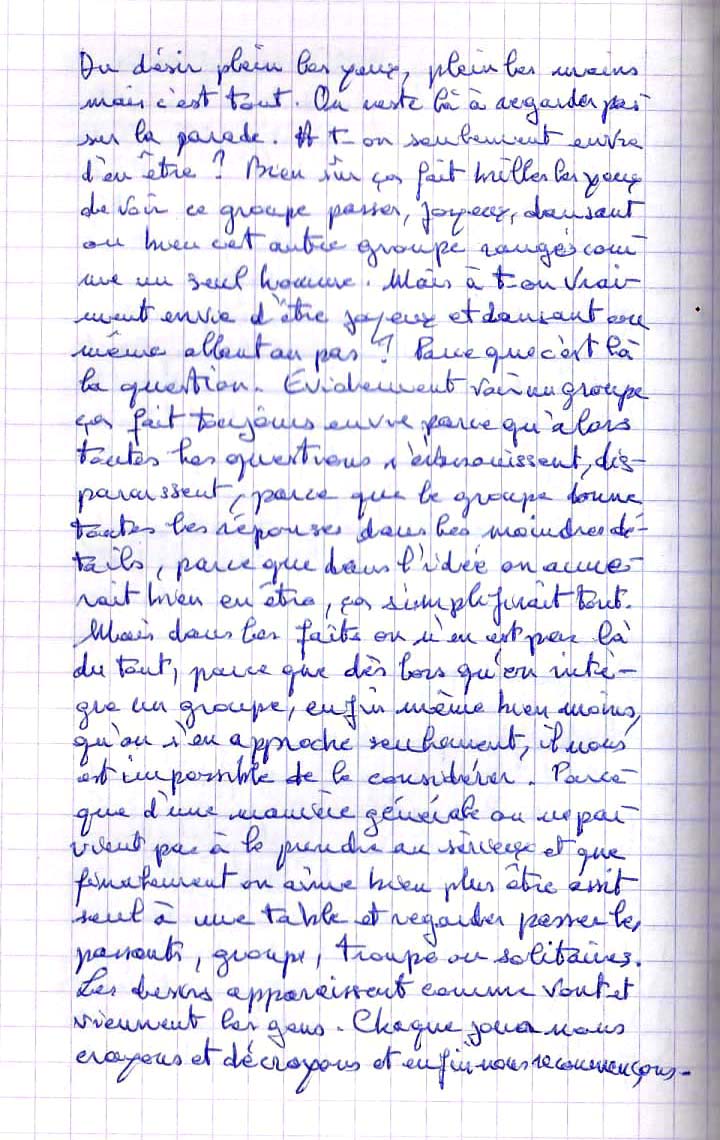 Du désir plein les yeux, plein les mains
mais c'est tout. On reste là à regarder pas-
ser la parade. A t-on seulement envie
d'en être ? Bien sûr ça fait briller les yeux
de voir ce groupe passer, joyeux, dansant
ou bien cet autre groupe rangés com-
me un seul homme. Mais à t-on vrai-
ment envie d'être joyeux et dansant ou
même allant au pas ? Parce que c'est là
la question. Evidemment voir un groupe
ça fait toujours envie parce qu'alors
toutes les questions s'évanouissent, dis-
paraissent, parce que le groupe donne
toutes les réponses dans les moindres dé-
tails, parce que dans l'idée on aime-
rait bien en être, ça simplifierait tout.
Mais dans les faits on n'en est pas là
du tout, parce que dès lors qu'on intè-
gre un groupe, enfin même bien moins,
qu'on s'en approche seulement, il nous
est impossible de le considérer. Parce
que d'une manière générale on ne par-
vient pas à le prendre au sérieux et que
finalement on aime bien plus être assit
seul à une table et regarder passer les
passants, groupe, troupe ou solitaires.
Les desirs apparaissent comme vont et
viennent les gens. Chaque jour nous
croyons et décroyons et enfin nous recommençons.